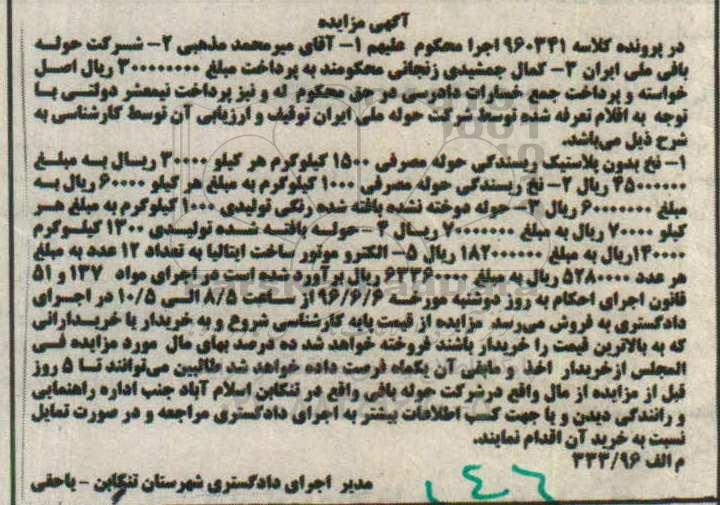 آگهی مزایده
در پرونده کلاسه ۹۶۰۳۴۱ اجرا محکوم علیهم ۱- آقای میرمحمد مذهبی ۲- شرکت حوله
بافی ملی ایران ۳- کمال جمشیدی زنجانی محکومند به پرداخت مبلغ ۳۰۰۰۰۰۰۰۰ ریال اصل
خواسته و پرداخت جمع خسارات دادرسی در حق محکوم له و نیز پرداخت نیمعشر دولتی با
توجه به اقلام تعرفه شده توسط شرکت حوله ملی ایران توقیف و ارزیابی آن توسط کارشناسی به
شرح ذیل می‌باشد.
۱- نخ بدون پلاستیک ریسندگی حوله مصرفی ۱۵۰۰ کیلوگرم هر کیلو ۳۰۰۰۰ ریال به مبلغ
۴۵۰۰۰۰۰۰ ریال ۲- نخ ریسندگی حوله مصرفی ۱۰۰۰ کیلوگرم به مبلغ هر کیلو ۶۰۰۰۰ ریال به
مبلغ ۶۰۰۰۰۰۰۰ ریال ۳- حوله دوخته نشده بافته شده رنگی تولیدی ۱۰۰۰ کیلوگرم به مبلغ هر
کیلو ۷۰۰۰۰ ریال به مبلغ ۷۰۰۰۰۰۰۰ ریال ۴- حوله بافته شده تولیدی ۱۳۰۰ کیلوگرم
۱۴۰۰۰۰ریال به مبلغ ۱۸۲۰۰۰۰۰۰ ریال ۵- الکترو موتور ساخت ایتالیا به تعداد ۱۲ عدد به مبلغ
هر عدد ۵۲۸۰۰۰۰ ریال به مبلغ ۶۳۳۶۰۰۰۰ ریال برآورد شده است در اجرای مواد ۱۳۷ و ۵۱
قانون اجرای احکام به روز دوشنبه مورخه ۹۶/۶/۶ از ساعت ۸/۵ الی ۱۰/۵ در اجرای
دادگستری به فروش می‌رسد مزایده از قیمت پایه کارشناسی شروع و به خریدار یا خریدارانی
که به بالاترین قیمت را خریدار باشند فروخته خواهد شد ده درصد بهای مال مورد مزایده فی
المجلس ازخریدار اخذ و مابقی آن یکماه فرصت داده خواهد شد طالبین می‌توانند تا ۵ روز
قبل از مزایده از مال واقع درشرکت حوله بافی واقع در تنکابن اسلام آباد جنب اداره راهنمایی
و رانندگی دیدن و یا جهت کسب اطلاعات بیشتر به اجرای دادگستری مراجعه و در صورت تمایل
نسبت به خرید آن اقدام نمایند.
م الف ۳۳۳/۹۶
مدیر اجرای دادگستری شهرستان تنکابن - یاحقی